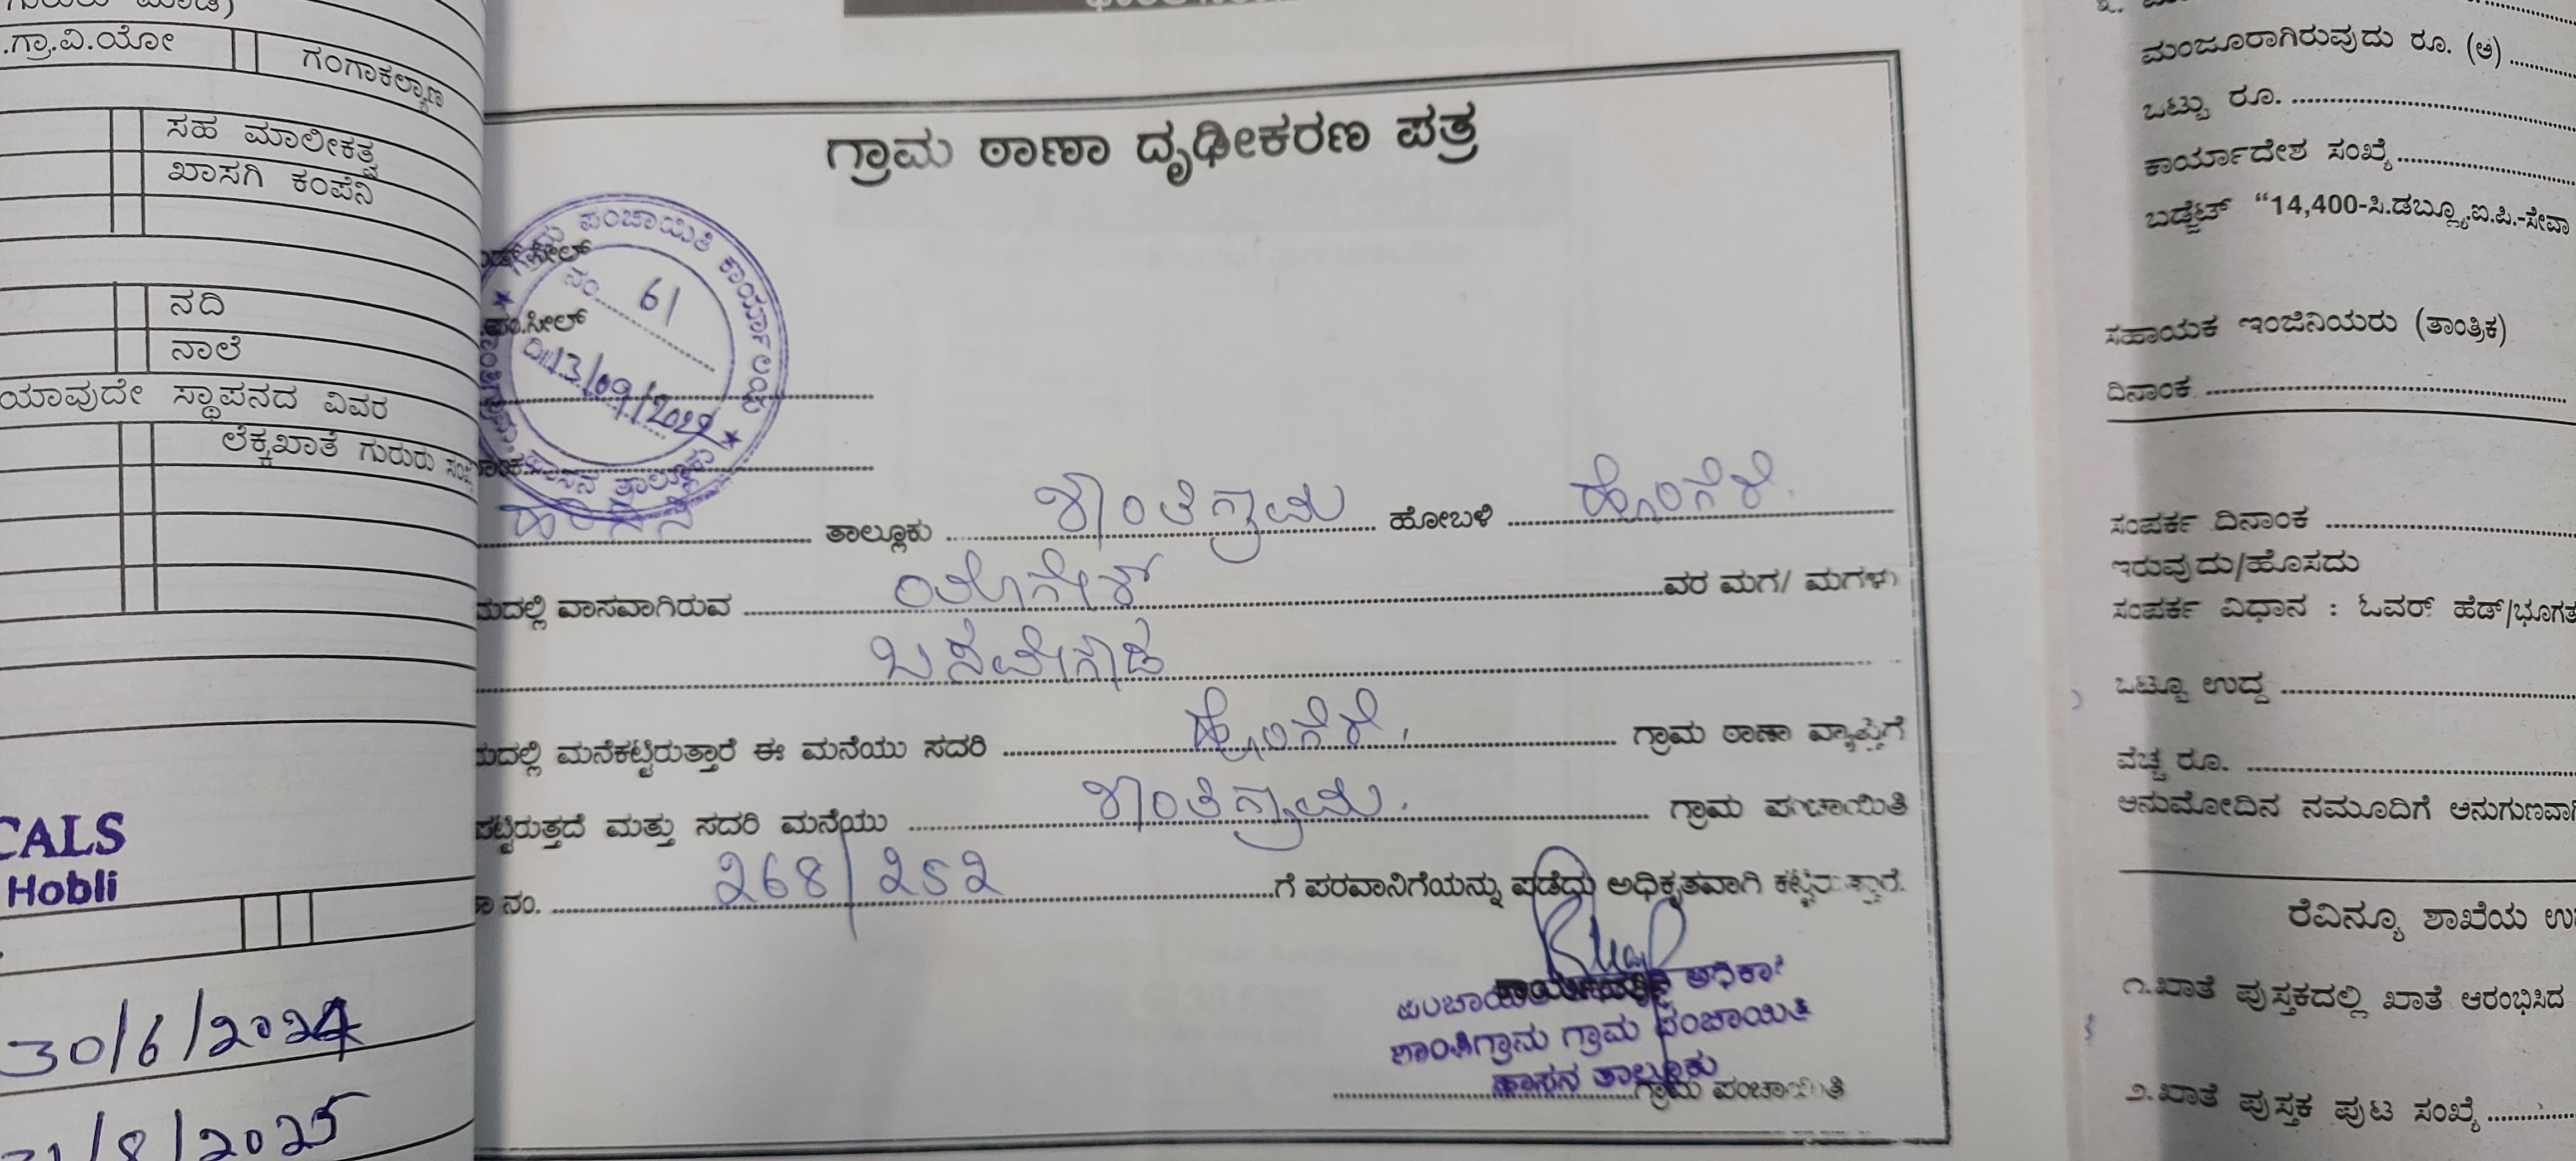 .ಗ್ರಾ.ವಿ.ಯೋ
ಗಂಗಾಕಲ್ಯಾಣ
ಸಹ ಮಾಲೀಕತ್ವ
ಖಾಸಗಿ ಕಂಪೆನಿ
ನದಿ
ನಾಲೆ
ಯಾವುದೇ ಸ್ಥಾಪನದ ವಿವರ
ಲೆಕ್ಕಖಾತೆ ಗುರುರು ಸಂಖ್ಯೆ
CALS
Hobli
30/6/2024
31/8/2025
ಗ್ರಾಮ ಠಾಣಾ ದೃಢೀಕರಣ ಪತ್ರ
ಗ್ರಾಮ ಪಂಚಾಯಿತಿ ಕಾರ್ಯಾಲಯ
ನಂ. 61
ದಿ: 13/09/2022
ಹಾಸನ ತಾಲ್ಲೂಕು
ಹಾಸನ ತಾಲ್ಲೂಕು ಶಾಂತಿಗ್ರಾಮ ಹೋಬಳಿ ಹೊಂಗೆರೆ.
ಮದಲ್ಲಿ ವಾಸವಾಗಿರುವ ಯೋಗೇಶ್ ವರ ಮಗ/ ಮಗಳು
ಬಸವೇಗೌಡ
ಮದಲ್ಲಿ ಮನೆಕಟ್ಟಿರುತ್ತಾರೆ ಈ ಮನೆಯು ಸದರಿ ಹೊಂಗೆರೆ. ಗ್ರಾಮ ಠಾಣಾ ವ್ಯಾಪ್ತಿಗೆ
ಪಟ್ಟಿರುತ್ತದೆ ಮತ್ತು ಸದರಿ ಮನೆಯು ಶಾಂತಿಗ್ರಾಮ. ಗ್ರಾಮ ಪಂಚಾಯಿತಿ
ನಂ. 268/252 ಗೆ ಪರವಾನಿಗೆಯನ್ನು ಪಡೆದು ಅಧಿಕೃತವಾಗಿ ಕಟ್ಟಿರುತ್ತಾರೆ.
ಶಾಂತಿಗ್ರಾಮ ಗ್ರಾಮ ಪಂಚಾಯಿತಿ
ಹಾಸನ ತಾಲ್ಲೂಕು
ಗ್ರಾಮ ಪಂಚಾಯಿತಿ
ಮಂಜೂರಾಗಿರುವುದು ರೂ. (ಅ)
ಒಟ್ಟು ರೂ.
ಕಾರ್ಯಾದೇಶ ಸಂಖ್ಯೆ
ಬಡ್ಜೆಟ್ “14,400-ಸಿ.ಡಬ್ಲ್ಯೂ.ಐ.ಪಿ.-ಸೇವಾ
ಸಹಾಯಕ ಇಂಜಿನಿಯರು (ತಾಂತ್ರಿಕ)
ದಿನಾಂಕ
ಸಂಪರ್ಕ ದಿನಾಂಕ
ಇರುವುದು/ಹೊಸದು
ಸಂಪರ್ಕ ವಿಧಾನ : ಓವರ್ ಹೆಡ್/ಭೂಗತ
ಒಟ್ಟೂ ಉದ್ದ
ವೆಚ್ಚ ರೂ.
ಅನುಮೋದಿನ ನಮೂದಿಗೆ ಅನುಗುಣವಾಗಿ
ರೆವಿನ್ಯೂ ಶಾಖೆಯ
೧.ಖಾತೆ ಪುಸ್ತಕದಲ್ಲಿ ಖಾತೆ ಆರಂಭಿಸಿದ
೨.ಖಾತೆ ಪುಸ್ತಕ ಪುಟ ಸಂಖ್ಯೆ